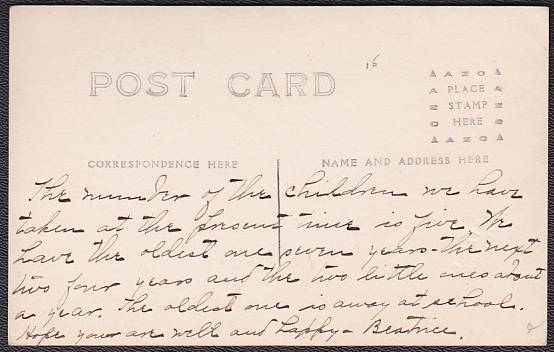 15
POST CARD
AZO
PLACE
STAMP
HERE
AZO
CORRESPONDENCE HERE
NAME AND ADDRESS HERE
The number of the children we have
taken at the present time is five. We
have the oldest one seven years - the next
two four years and the two little ones about
a year. The oldest one is away at school.
Hope you are well and happy - Beatrice.